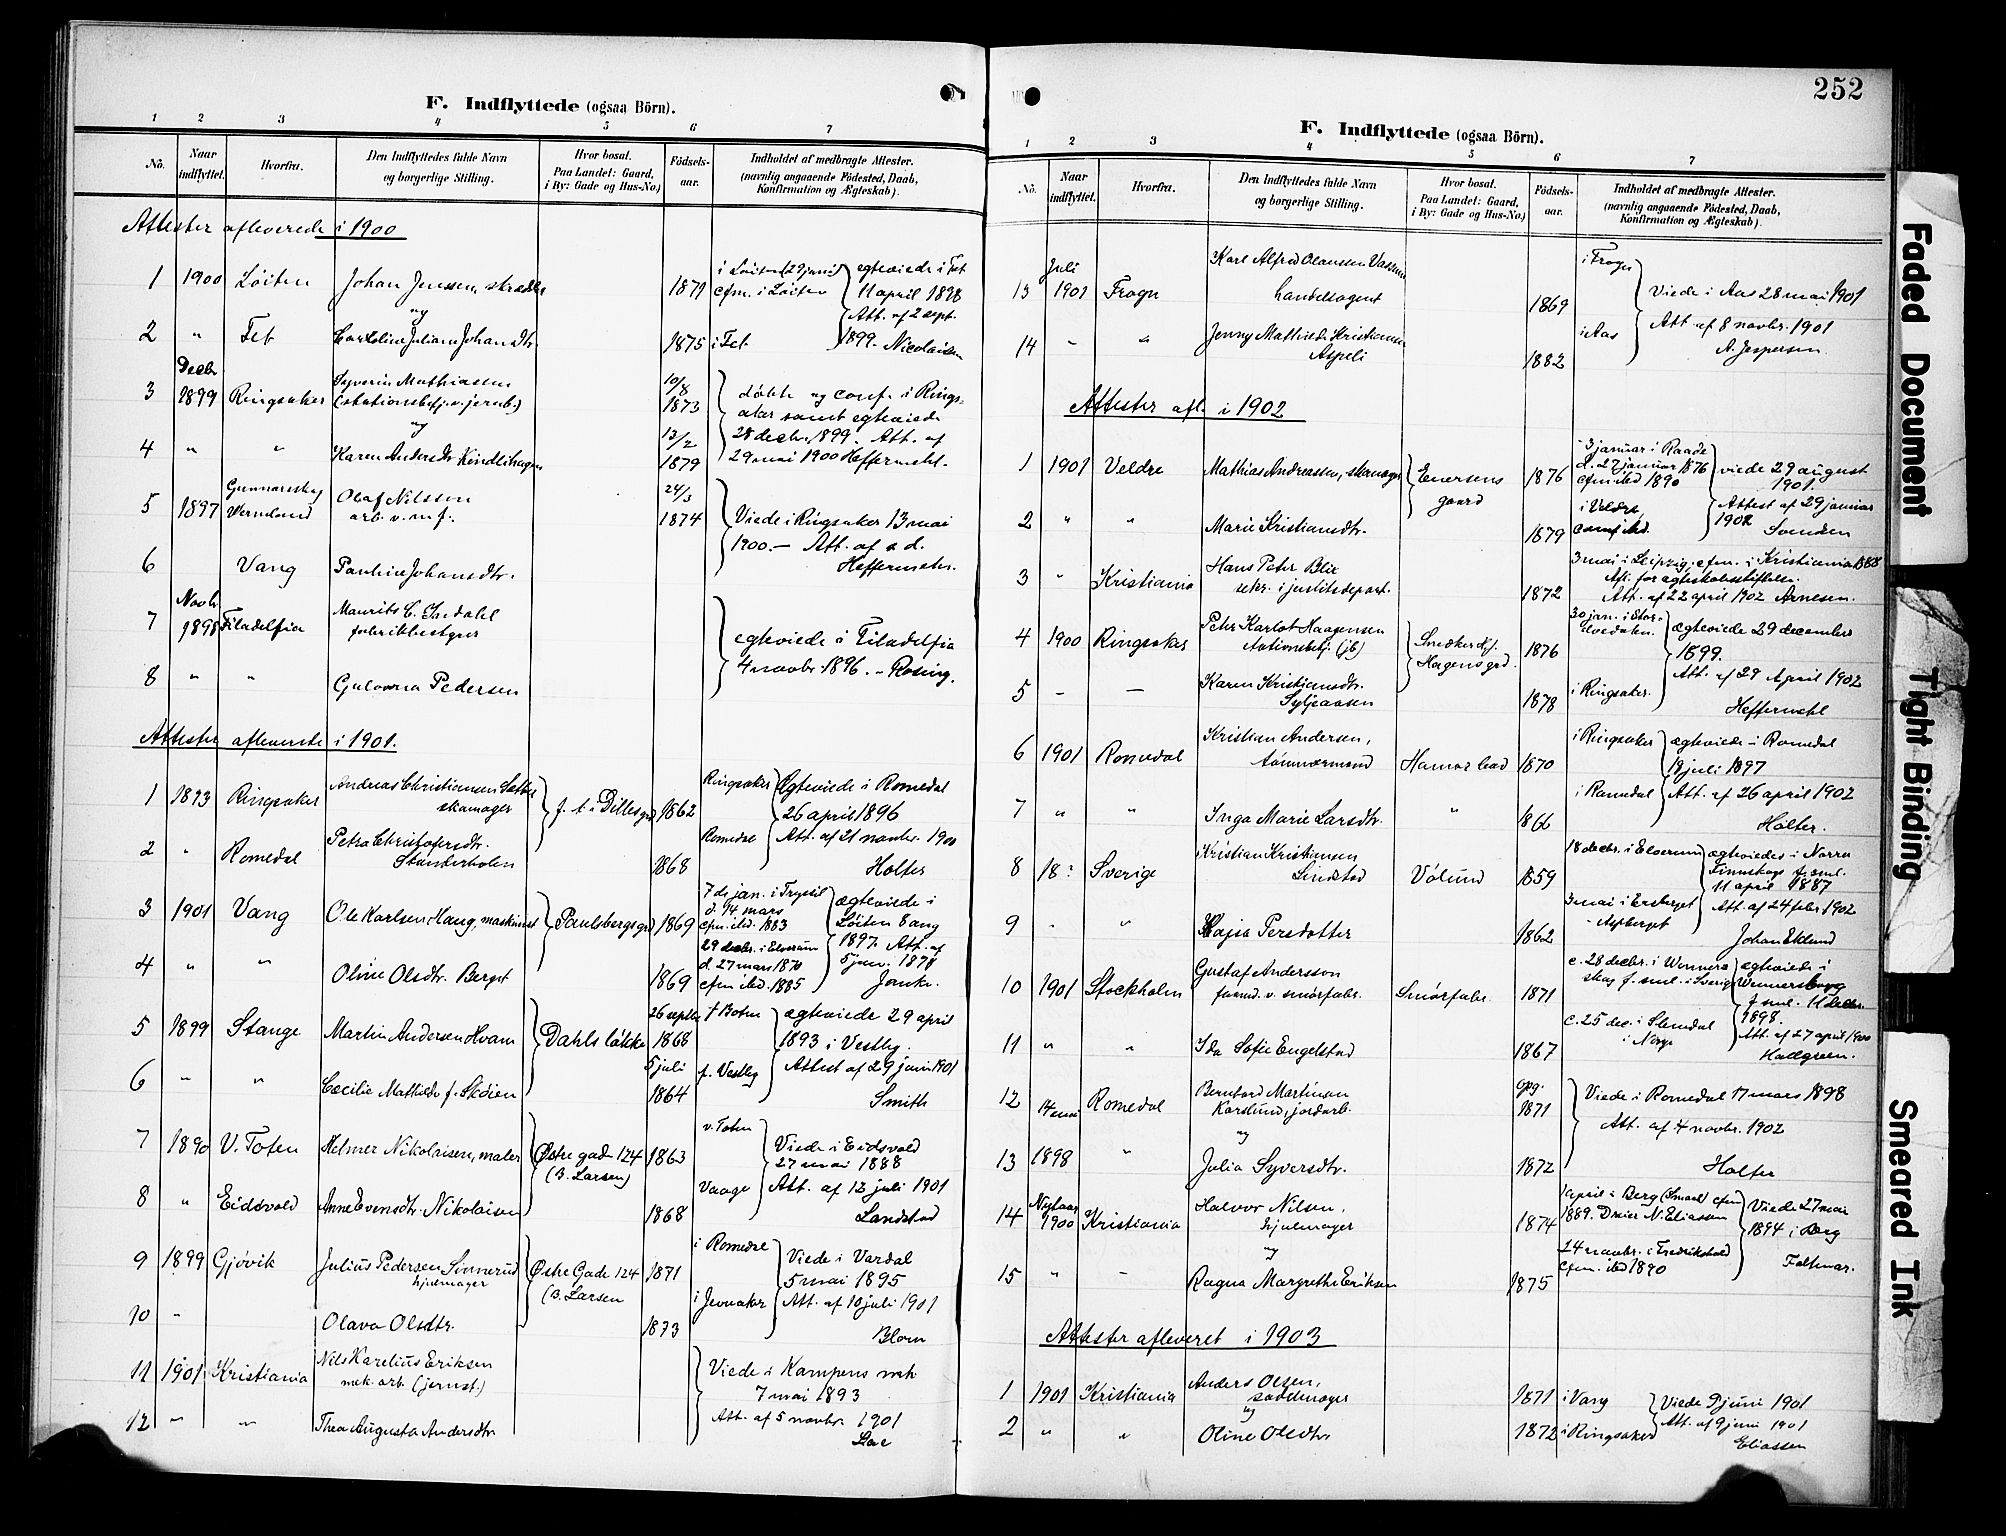 F. Indflyttede (ogsaa Börn).
1 2 3 4 5 6 7
No. Naar indflyttet. Hvorfra. Den Indflyttedes fulde Navn og borgerlige Stilling. Hvor bosat. Paa Landet: Gaard, i By: Gade og Hus-No.) Födsels-aar. Indholdet af medbragte Attester. (navnlig angaaende Födested, Daab, Konfirmation og Ægteskab).
Attester afleverede i 1900
1 1900 Løiten Johan Jenssen, skrædder 1871 i Løiten (29 juni) cfm. i Løiten egteviede i Fet
og 11 april 1898
Att. af 2 sept.
2 " Fet Karoline Juliane Johansdtr. 1875 i Fet 1899. Nicolaisen
Decbr
3 1899 Ringsaker Syverin Mathiassen (stationsbetj. v. jernb.) 10/8 1873 døbte og conf. i Rings-
og aker samt egteviede
28 decbr. 1899. Att. af
4 " " Karen Andersdtr Kindlihagen 13/2 1879 29 mai 1900 Heffermehl.
5 1897 Gunnarskog Wermland Olaf Nilssen arb. v. m. f. 24/3 1874 Viede i Ringsaker 13 mai
1900. — Att. af s. d.
6 Vang Pauline Johansdtr. Heffermehl.
7 Novbr. 1898 Filadelfia Maurits C. fabrikbestyrer egteviede i Filadelfia
4 novbr. 1896. - Rosing.
8 " " Gulovna Pedersen
Attester afleverede i 1901.
1 1893 Ringsaker Andreas Christiansen skomager f. t. i Dillesgrd 1862 Ringsaker Egteviede i Romedal
26 april 1896
2 " Romedal Petra Christofersdtr. 1868 Romedal Att. af 21 novbr. 1900
Holter
3 1901 Vang Ole Karlsen Haug, maskinist Paulsbergsgrd 1869 7de jan. i Trysil d. 14 mars cfm. ibd. 1883 ægteviede i
Løiten 8 aug
1897. Att. af
4 " " Oline Olsdtr. Berget 1869 29 decbr. i Elverum d. 27 mars 1870 cfm ibd. 1885 5 jan. 1898
5 1899 Stange Martin Andersen Hvam Dahls løkke 26 septbr 1868 ægteviede 29 april
1893 i Vestby.
6 " " Cecilie Mathilde f. Skøien 5 juli 1864 f. Vestby Attest af 29 juni 1901
Smith
7 1890 V. Toten Helmer Nikolaisen, maler Østre gade 124 (B. Larsen) 1863 v. Toten Viede i Eidsvold
27 mai 1888
8 " Eidsvold Anne Evensdtr. Nikolaisen 1868 Vaage Att. af 12 juli 1901
Landstad
9 1899 Gjøvik Julius Pedersen Sönnerud hjulmager Østre Gade 124 (B. Larsen 1871 i Romedal Viede i Vardal
5 mai 1895
10 " Olava Olsdtr. 1873 i Jevnaker Att. af 10 juli 1901
Blom
11 1901 Kristiania Nils Karelius Eriksen mek. arb. (jernst.) Viede i Kampens mh
7 mai 1893
12 " " Thea Augusta Andersdtr Att. af 5 novbr. 1901
252
F. Indflyttede (ogsaa Börn).
1 2 3 4 5 6 7
No. Naar indflyttet. Hvorfra. Den Indflyttedes fulde Navn og borgerlige Stilling. Hvor bosat. Paa Landet: Gaard, i By: Gade og Hus-No.) Födsels-aar. Indholdet af medbragte Attester. (navnlig angaaende Födested, Daab, Konfirmation og Ægteskab).
13 Juli 1901 Frogn Karl Alfred Olaussen handelsagent 1869 i Frogn Viede i Aas 28 mai 1901
Att. af 8 novbr. 1901
14 " " Jenny Mathilde Kristiansen Aspeli 1882 i Aas A. Jespersen.
Attester afl. i 1902
1 1901 Veldre Mathias Andreassen, skomager Enersens gaard 1876 3 januar i Raade d. 27 januar 1876 cfm ibd 1890 viede 29 august
1901.
Attest af 29 januar
2 " " Marie Kristiansdtr. 1879 i Veldre, conf. ibd. 1902 Svendsen
3 " Kristiania Hans Peter Blix sekr. i justitsdepart. 1872 3 mai i Leipzig, cfm. i Kristiania 1888
Att. af 22 april 1902 Arnesen.
4 1900 Ringsaker Peter Karlot Haagensen stationsbetj. (jb) Snedker Hagens grd. 1876 30 jan. i Stor-Elvedalen. ægteviede 29 december
1899.
5 - - Karen Kristiansdtr. 1878 i Ringsaker. Att. af 29 April 1902
Heffermehl
6 1901 Romedal Kristian Andersen, tømmermand Hamar bad 1870 i Ringsaker ægteviede i Romedal
18 juli 1897
7 " " Inga Marie Larsdtr. " 1866 i Romedal Att. af 26 april 1902
Holter.
8 18: Sverige Kristian Kristiansen Vølund 1859 18 decbr. i Elverum ægteviedes i Norra
Finnskoga f. sml.
11 april 1887
9 " " Kajsa Persdotter 1862 3 mai i Att. af 24 febr. 1902
Johan Eklund
10 1901 Stockholm Gustaf Andersson formd. v. smörfabr. Smørfabr. 1871 c. 28 decbr. i Wenners skog f. sml. i Sverige ægteviede i
Wennersborg
f sml. 11 decbr.
1898.
11 " " Ida Sofie Engelstad 1867 c. 25 dec. i Slemdal i Norge Att. af 27 april 1900
12 14 mai Romedal Bernhard Martinsen Karslund, jordarb. 1871 Viede i Romedal 17 mars 1898
og Att. af 4 novbr. 1902
13 1898 " Julia Syversdtr. 1872 Holter
14 Nytaar 1900 Kristiania Halvor Nilsen, hjulmager 1874 1 april i Berg (Smaal) cfm 1889. N. Eliassen Viede 27 mai
og 1894 i Berg
15 " - Ragna Margrethe Eriksen 1875 24 novbr. i Fredrikshald cfm. ibd 1890
Attester afleveret i 1903
1 1901 Kristiania Anders Olsen, saddelmager 1871 i Vang Viede 9 juni 1901
og Att. af 9 juni 1901
2 " " Oline Olsdtr 1872 i Ringsaker Eliassen
Faded Document
Tight Binding
Smeared Ink